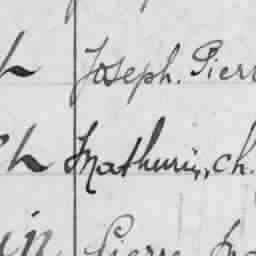 h Joseph. Pierr
ch Mathurin, ch.
in Pierre